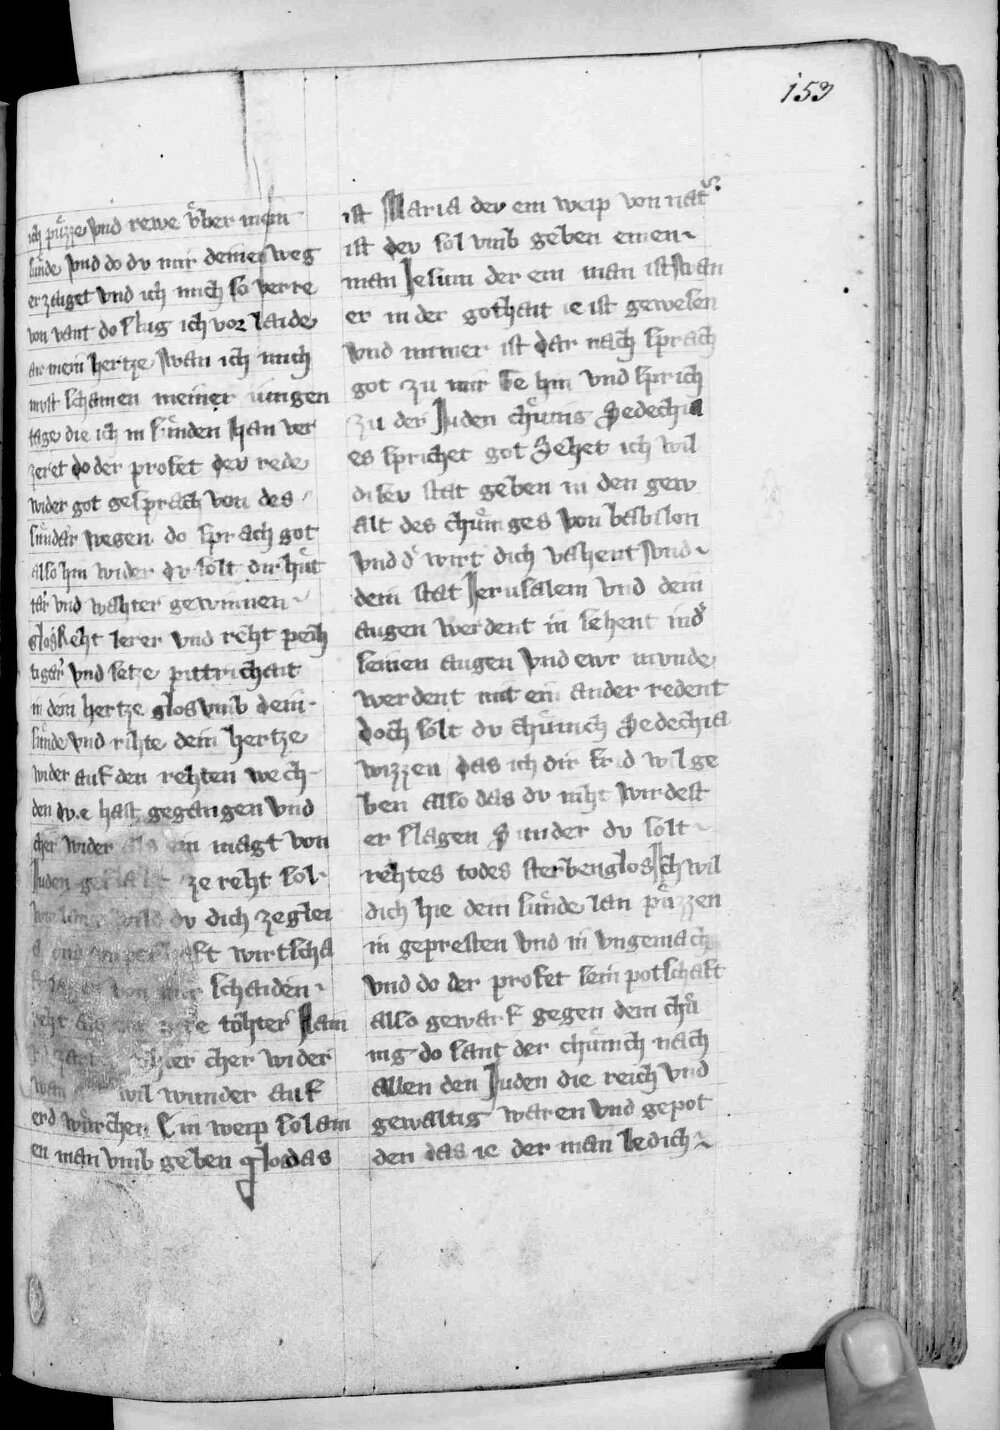 153
ich pu̍zze vnd rewe v̍ber mein
su̍nde vnd do dv mir deine weg
erzaiget vnd ich mich so verre
von vant do slug ich vor laide
an mein hertze wan ich mich
mvst schamen meiner iungen
tage die ich in su̍nden han ver
zeret do der profet dev rede
wider got gesprach von des
su̍ndar wegen do sprach got
also hin wider dv solt dir hu̍t
tar vnd wahter gewinnen
glos Reht lerer vnd reht peih
tigar vnd setze pittrichait
in dein hertze glos vmb dein
su̍nde vnd rihte dein hertze
wider auf den rehten wech
den dv e hast gegangen vnd
cher wider als ein magt von
Juden ze reht sol
wild dv dich ze glei
wirtscha
von mir schaiden
tohter Jam
cher wider
wan wil wunder auf
erd wu̍rchen Ein weip sol ain
en man vmb geben glos das
ist Maria dev ein weip von nat
ist dev sol vmb geben einen
man Jesum der ein man ist wan
er in der gothait ie ist gewesen
vnd immer ist dar nach sprach
got zu mir Ge hin vnd sprich
zu der Juden chu̍nig Sedechia
es sprichet got Sehet ich wil
disev stat geben in den gew
alt des chu̍niges von babilon
vnd d' wirt dich vahent vnd
dein stat Jerusalem vnd dein
augen werdent in sehent in d'
seinen augen vnd ewr mvnde
werdent mit ein ander redent
doch solt dv chu̍nich Sedechia
wizzen das ich dir frid wil ge
ben also das dv niht wirdest
er slagen Sunder dv solt
rehtes todes sterben glos Ich wil
dich hie dein su̍nde lan pu̍zzen
in gepresten vnd in vngemach
vnd do der profet sein potschaft
also gewarf gegen dem chu̍
nig do sant der chu̍nich nach
allen den Juden die reich vnd
gewaltig waren vnd gepot
den das ie der man ledich